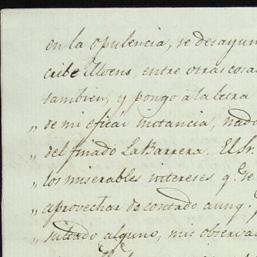 en la opulencia, se desayun
cribe Elvono, entre otras cosa
tambien, y pongo a la letra
„ de mi eficáz instancia, nad
„ del finado LaBarrera. El Sr.
„ los miserables intereses q.e se
„ aprovechar de contado aunq.
„ suitado alguno, mis observa